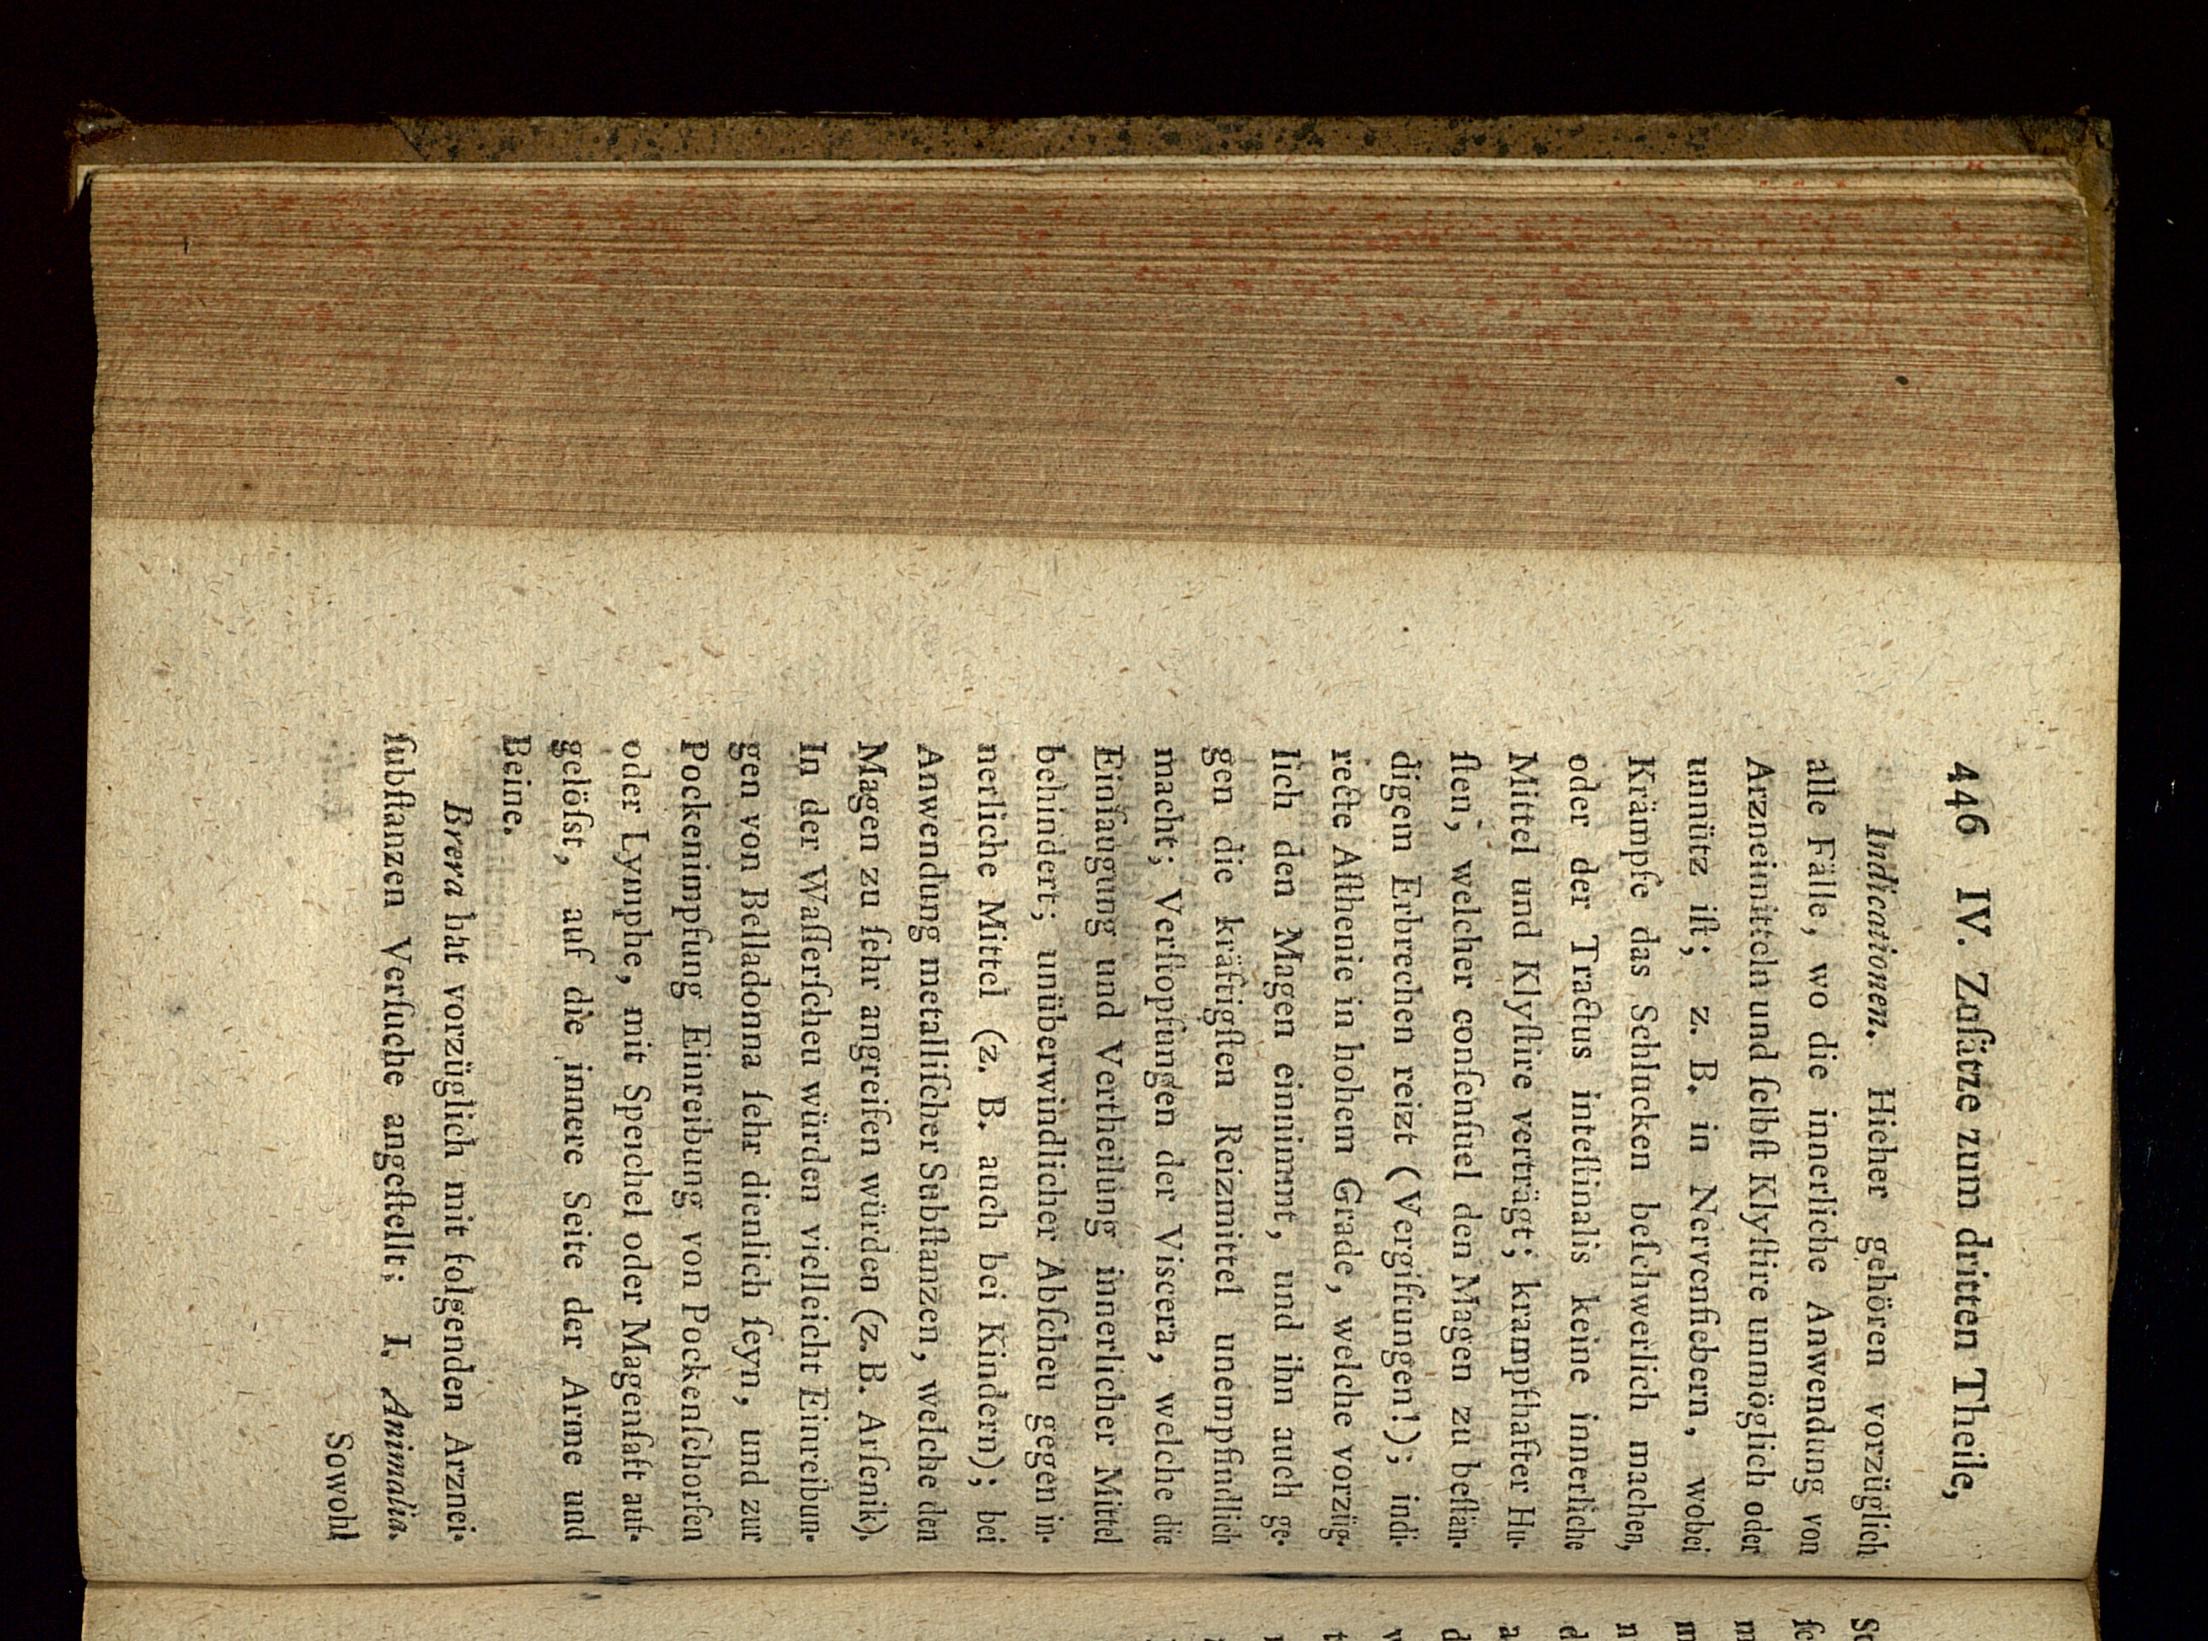 446 IV. Zuſätze zum dritten Theile,
Indicationen. Hieher gehören vorzüglich
alle Fälle, wo die innerliche Anwendung von
Arzneimitteln und ſelbſt Klyſtire unmöglich oder
unnütz iſt; z. B. in Nervenfiebern, wobei
Krämpfe das Schlucken beſchwerlich machen,
oder der Tractus inteſtinalis keine innerliche
Mittel und Klyſtire verträgt; krampfhafter Hu-
ſten, welcher conſenſuel den Magen zu beſtän-
digem Erbrechen reizt (Vergiftungen!); indi-
recte Aſthenie in hohem Grade, welche vorzüg-
lich den Magen einnimmt, und ihn auch ge-
gen die kräftigſten Reizmittel unempfindlich
macht; Verſtopfungen der Viscera, welche die
Einſaugung und Vertheilung innerlicher Mittel
behindert; unüberwindlicher Abſcheu gegen in-
nerliche Mittel (z. B. auch bei Kindern); bei
Anwendung metalliſcher Subſtanzen, welche den
Magen zu ſehr angreifen würden (z. B. Arſenik).
In der Waſſerſcheu würden vielleicht Einreibun-
gen von Belladonna ſehr dienlich ſeyn, und zur
Pockenimpfung Einreibung von Pockenſchorfen
oder Lymphe, mit Speichel oder Magenſaft auf-
gelöſst, auf die innere Seite der Arme und
Beine.
Brera hat vorzüglich mit folgenden Arznei-
ſubſtanzen Verſuche angeſtellt; I. Animalia.
Sowohl